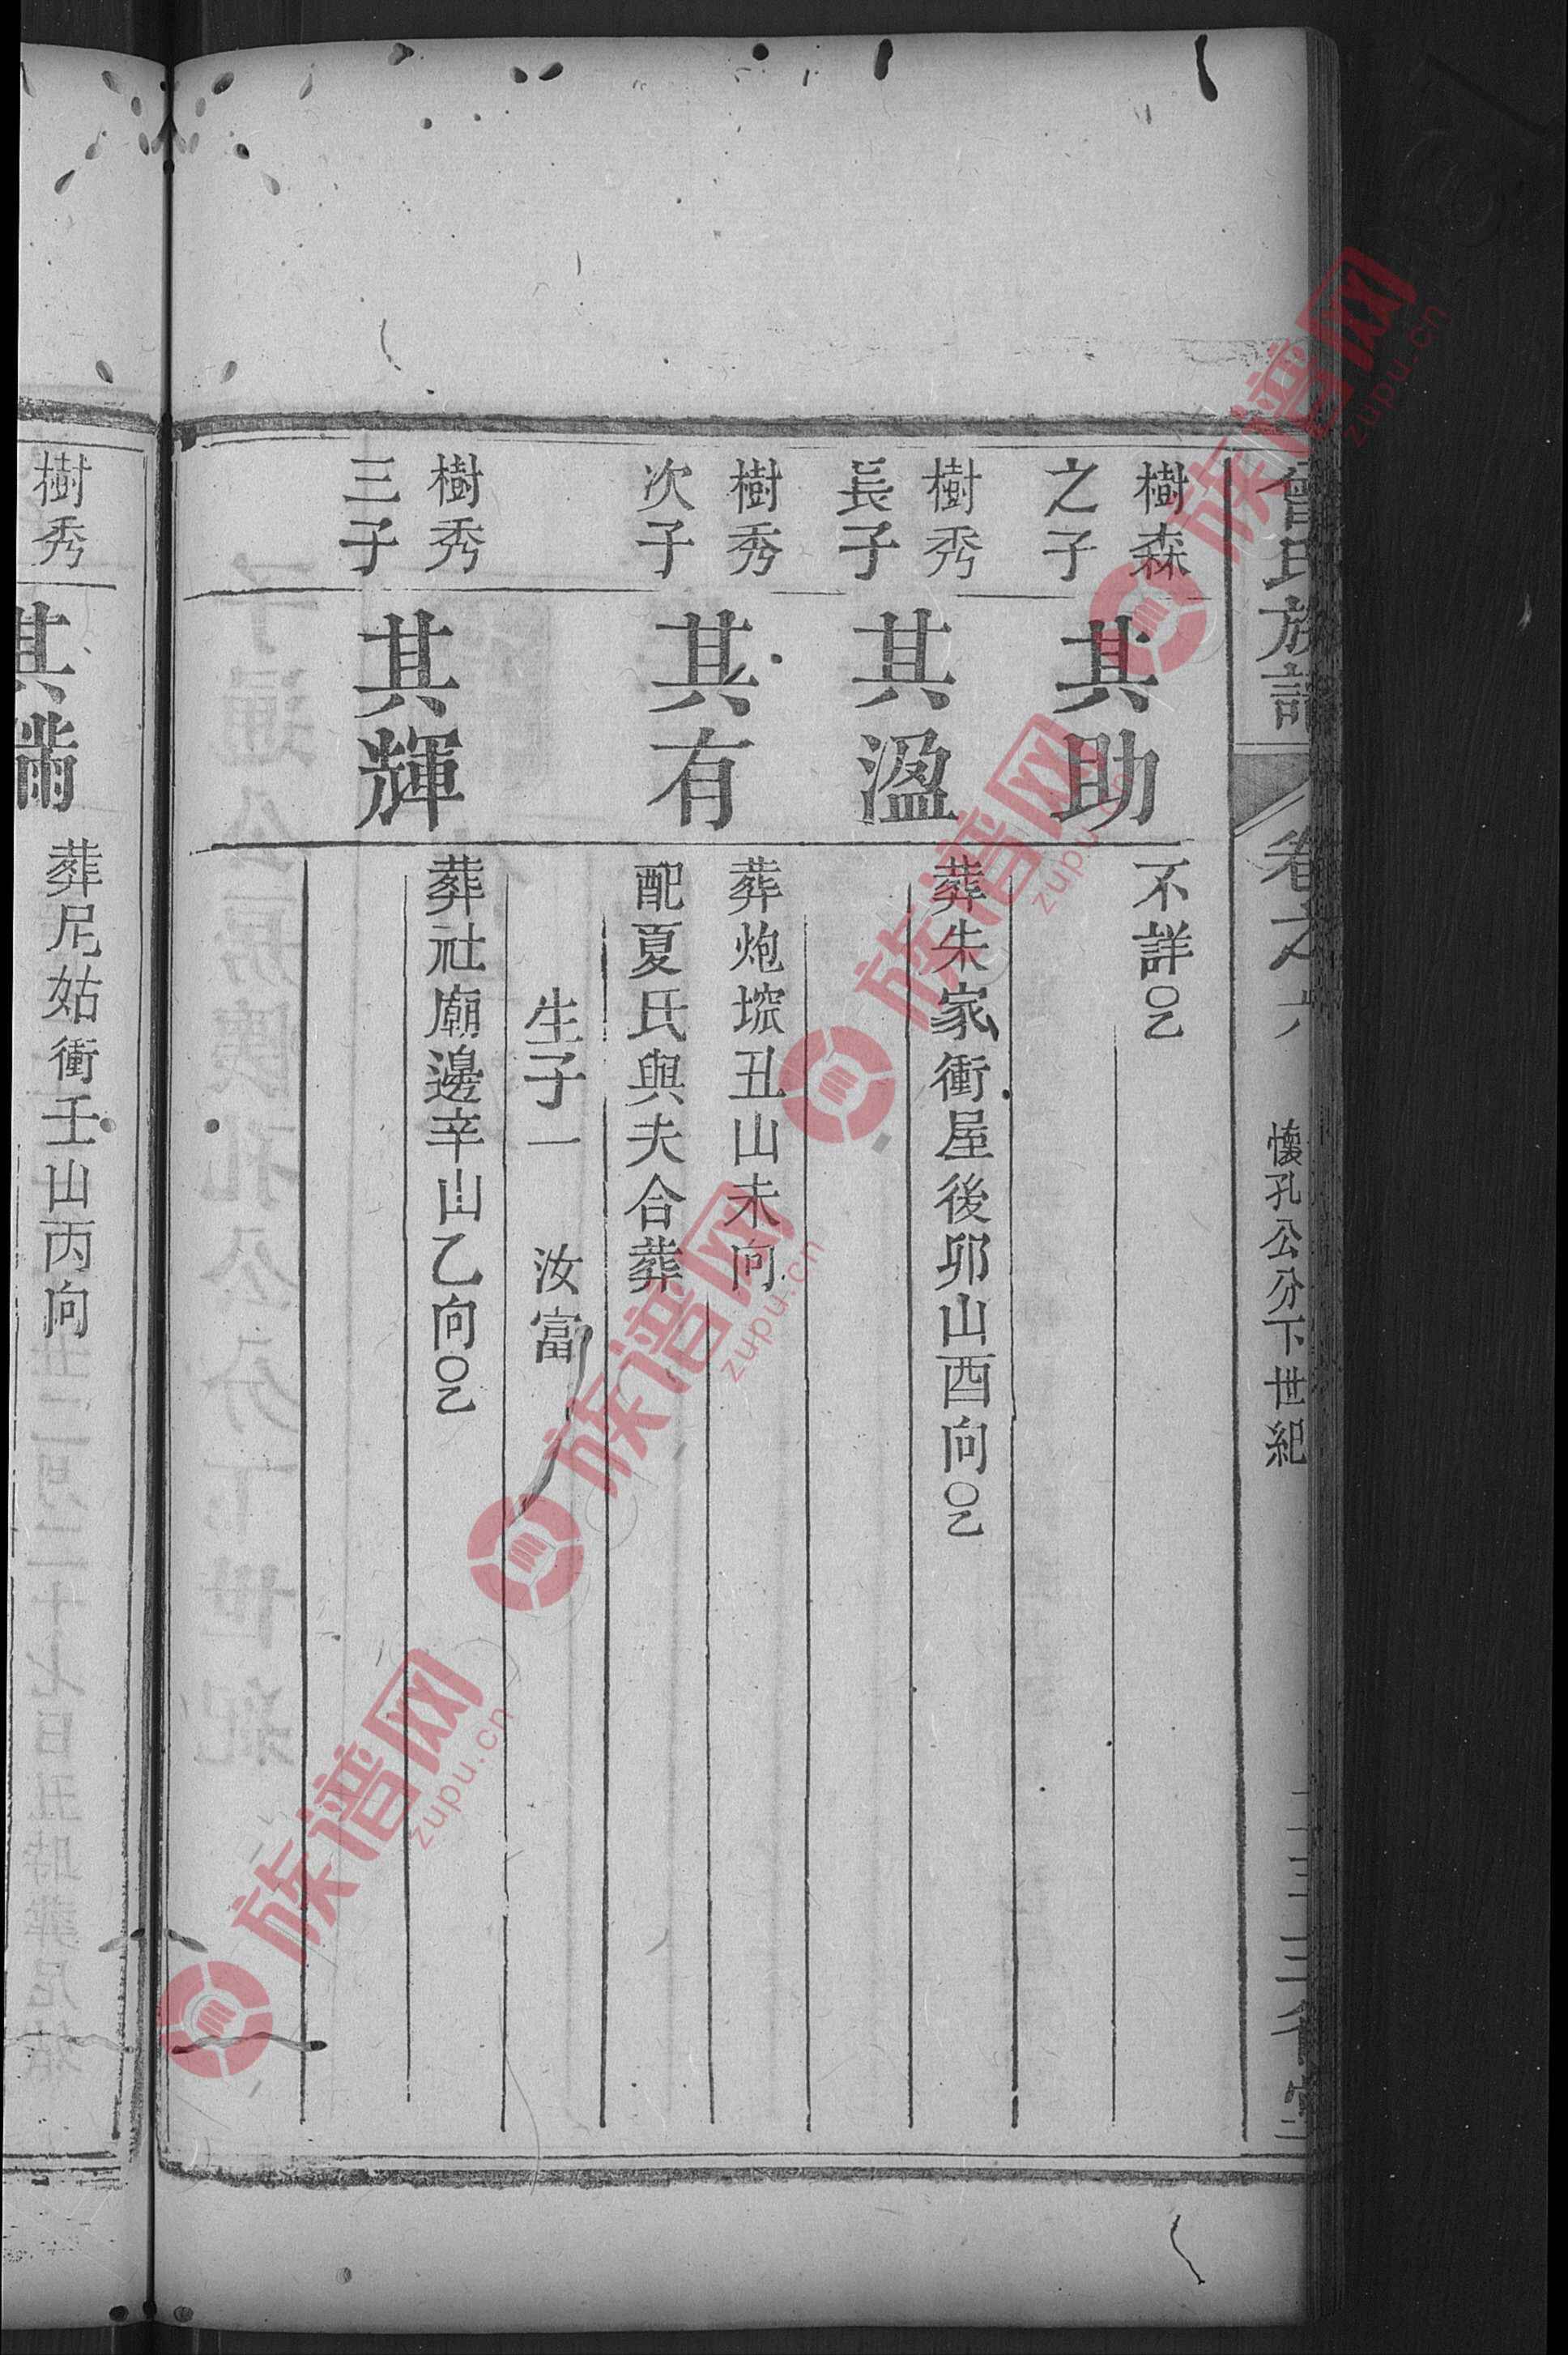 曾氏族譜
卷之六
懷孔公分下世紀
樹森
之子
其助
不詳〇乙
樹秀
長子
其溫
葬朱家衝屋後卯山酉向〇乙
樹秀
次子
其有
葬炮墩丑山未向
配夏氏與夫合葬
生子一 汝富
樹秀
三子
其輝
葬社廟邊辛山乙向〇乙
樹秀
其
葬尼姑衝壬山丙向
族谱网
zupu.cn
族谱网
zupu.cn
族谱网
zupu.cn
族谱网
zupu.cn